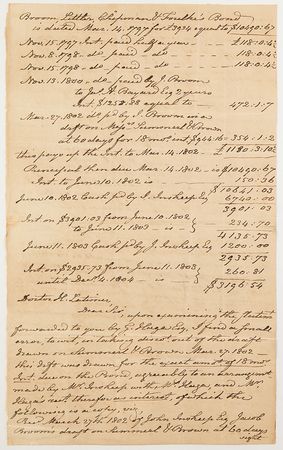 Broom, Lettler, Chapman & Foulke's Bond
is dated Mar. 14, 1797 for £3934 equal to $10490.67
Nov. 15. 1797 Int. paid half a year — £118:0:4½
Nov. 8. 1798 — do paid — do — 118:0:4½
Nov. 15. 1798 — do paid — do — 118:0:4½
Nov. 13. 1800 — do paid by J. Broom
to Jas. A. Bayard Esq 2 years
Int. $1258.88 equal to — 472:1:7
Mar. 27. 1802 do pd by J. Broom in a
draft on Mess. Simmons & Brown
at 60 days for 18 mos. int $944.16 = 354:1:2
this pays up the Int. to Mar. 14. 1802 — £1180:3:10½
Principal then due Mar. 14. 1802 is — $10490.67
Int. to June 10. 1802 is — 150.36
$10641.03
June 10. 1802 Cash pd by J. Inskeep Esq 6740.00
3901.03
Int on $3901.03 from June 10. 1802
to June 11. 1803 — is — 234.70
4135.73
June 11. 1803 Cash pd by J. Inskeep Esq 1200.00
2935.73
Int on $2935.73 from June 11. 1803
until Decr. 4. 1804 — is — 260.81
$3196.54
Doctor H. Latimer
Dear Sir, upon examining the
forwarded to you by G. Hazel Esq, I find a small
error, to wit, in taking discot. out of the draft
drawn on Simmons & Brown Mar. 27. 1802
this draft was drawn for the exact amot. of 18 mos.
Int. due on the Bond agreeably to an arrangemt.
made by Mr. Inskeep with Mr. Hazel and Mr.
of which the
following is a copy, viz.
Recd. March 27th 1802 of John Inskeep Esq Jacob
Broom's draft on Simmons & Brown at 60 days
sight